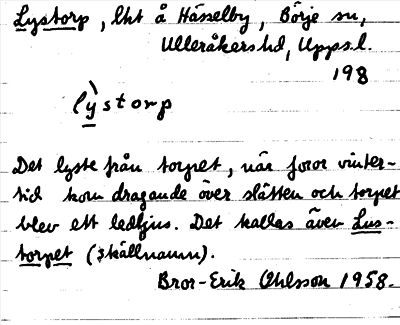 Lystorp, lht å Hässelby, Börje sn,
Ulleråkers hd, Upps.l.
198
lỳstorp
Det lyste från torpet, när foror vinter-
tid kom dragande över slätten och torpet
blev ett ledljus. Det kallas även Lus-
torpet (skällnamn).
Bror-Erik Ohlsson 1958.